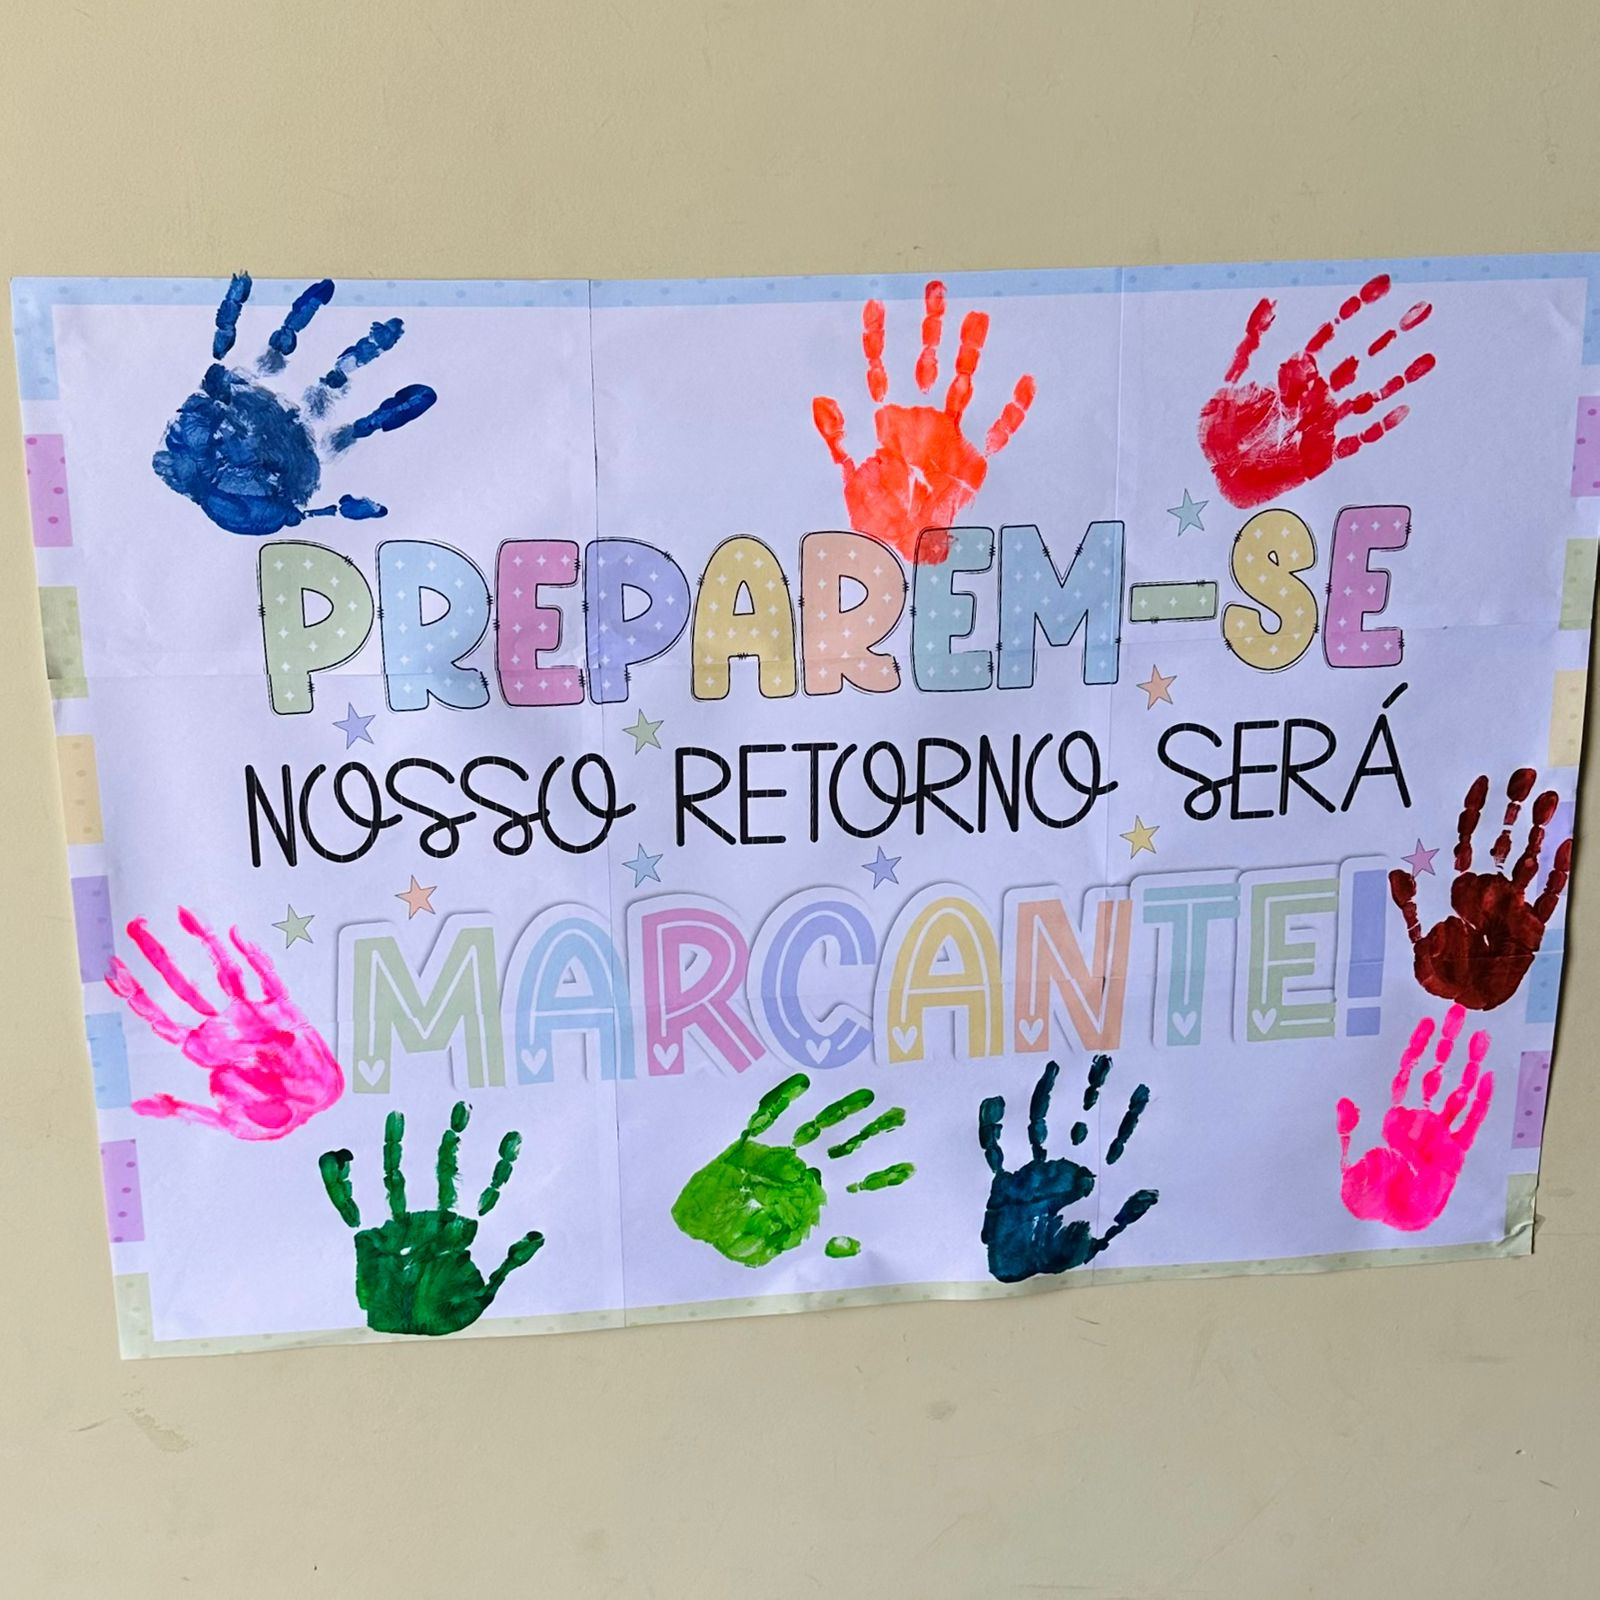 PREPAREM-SE
NOSSO RETORNO SERÁ
MARCANTE!